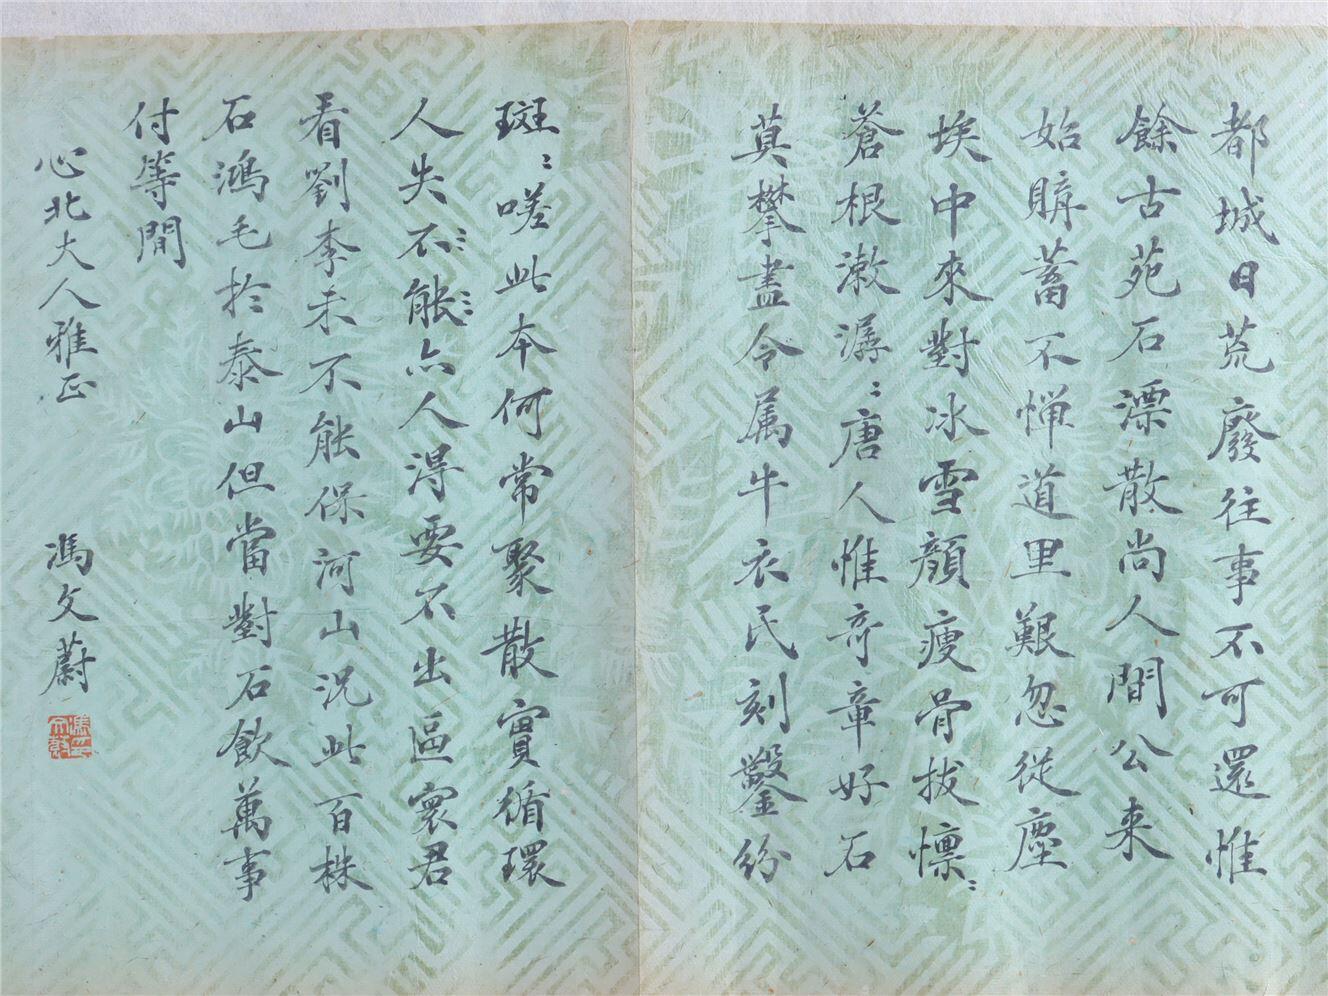 都城日荒廢往事不可還惟
餘古苑石漂散尚人間公來
始購蓄不憚道里艱忽從塵
埃中來對冰雪顏瘦骨拔懍〻
蒼根漱潺〻唐人惟奇章好石
莫攀盡令属牛衣民刻鑿紛
斑〻嗟此本何常聚散實循環
人失不能亦人得要不出區寰君
看劉李末不能保河山況此百株
石鴻毛於泰山但當對石飲萬事
付等閒
心北大人雅正
馮文蔚